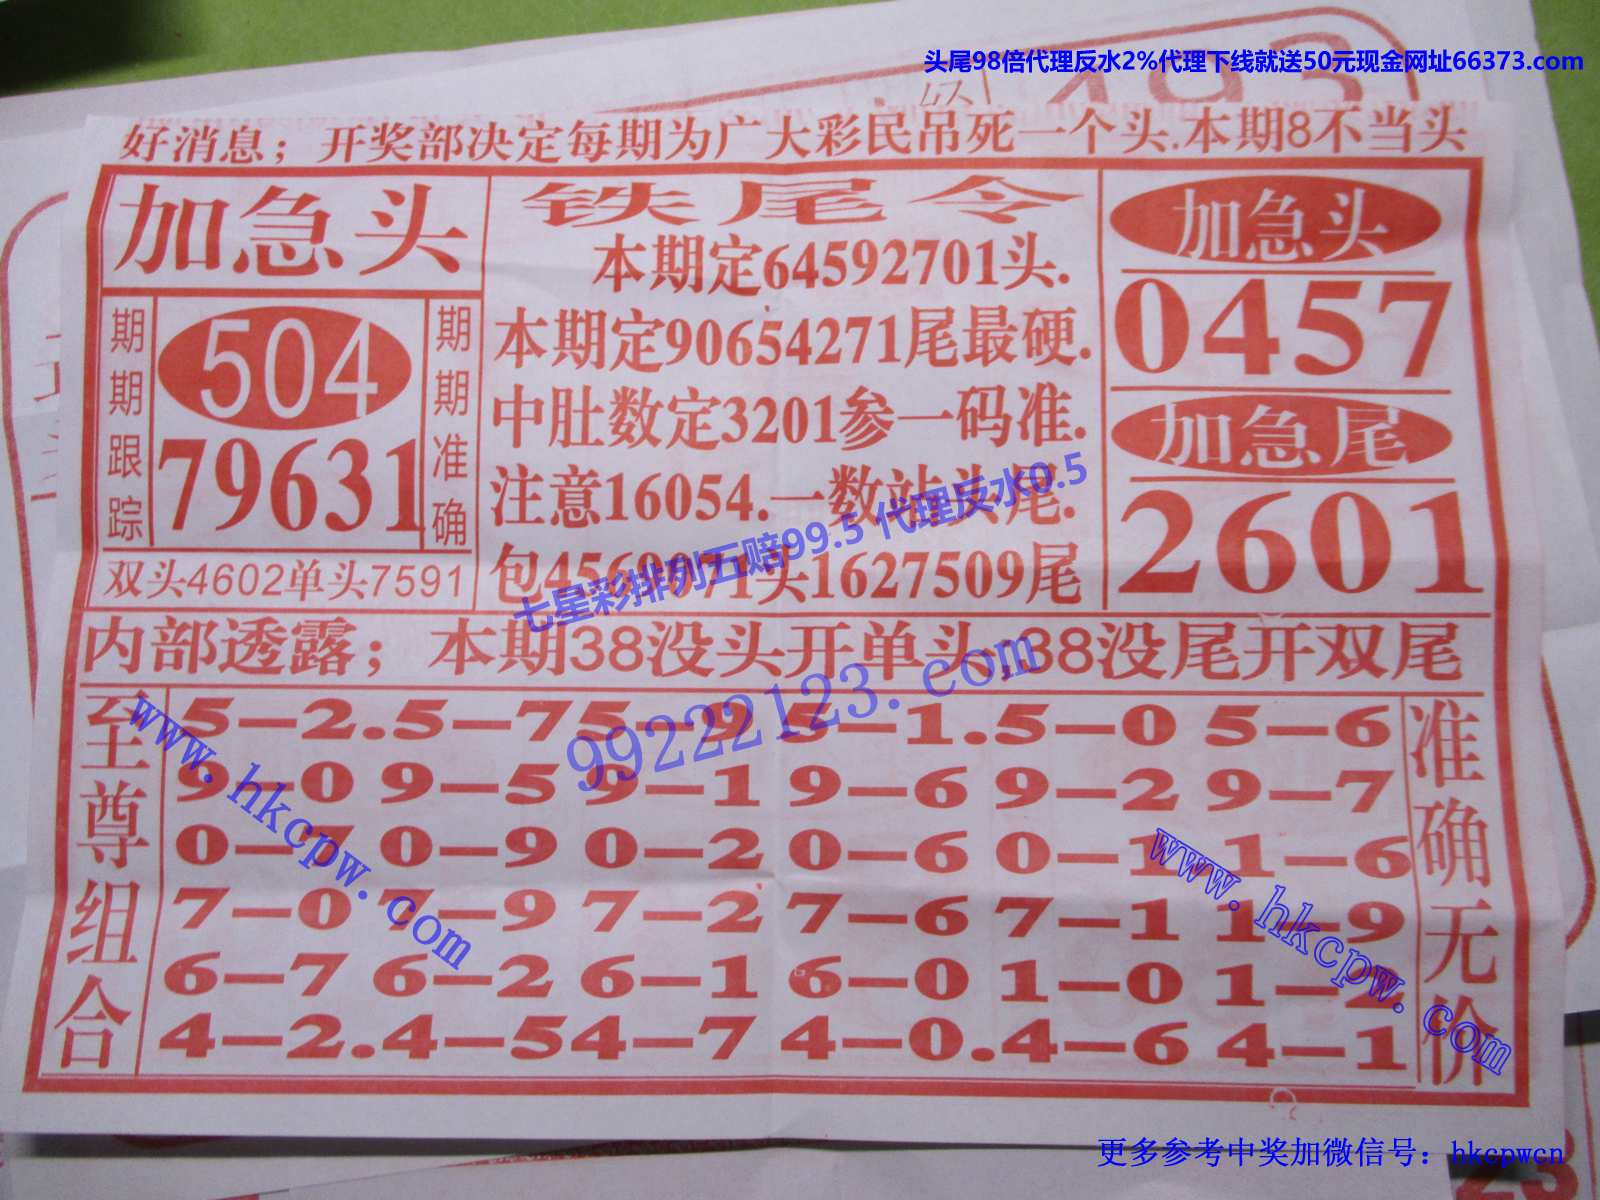 头尾98倍代理反水2%代理下线就送50元现金网址66373.com
好消息；开奖部决定每期为广大彩民吊死一个头.本期8不当头
加急头
期期跟踪
504
79631
期期准确
双头4602单头7591
铁尾令
本期定64592701头.
本期定90654271尾最硬.
中肚数定3201参一码准.
注意16054.一数站头尾.
头1627509尾
加急头
0457
加急尾
2601
七星彩排列五赔99.5 代理反水0.5
内部透露；本期38没头开单头;38没尾开双尾
99222123.com
至尊组合
5—2.5—7 5—9 5—1.5—0 5—6
9—0 9—5 9—1 9—6 9—2 9—7
0—7 0—9 0—2 0—6 0—1 1—6
7—0 7—9 7—2 7—6 7—1 1—9
6—7 6—2 6—1 6—0 1—0 1—2
4—2.4—5 4—7 4—0.4—6 4—1
准确无价
www.hkcpw.com
www.hkcpw.com
更多参考中奖加微信号：hkcpwcn